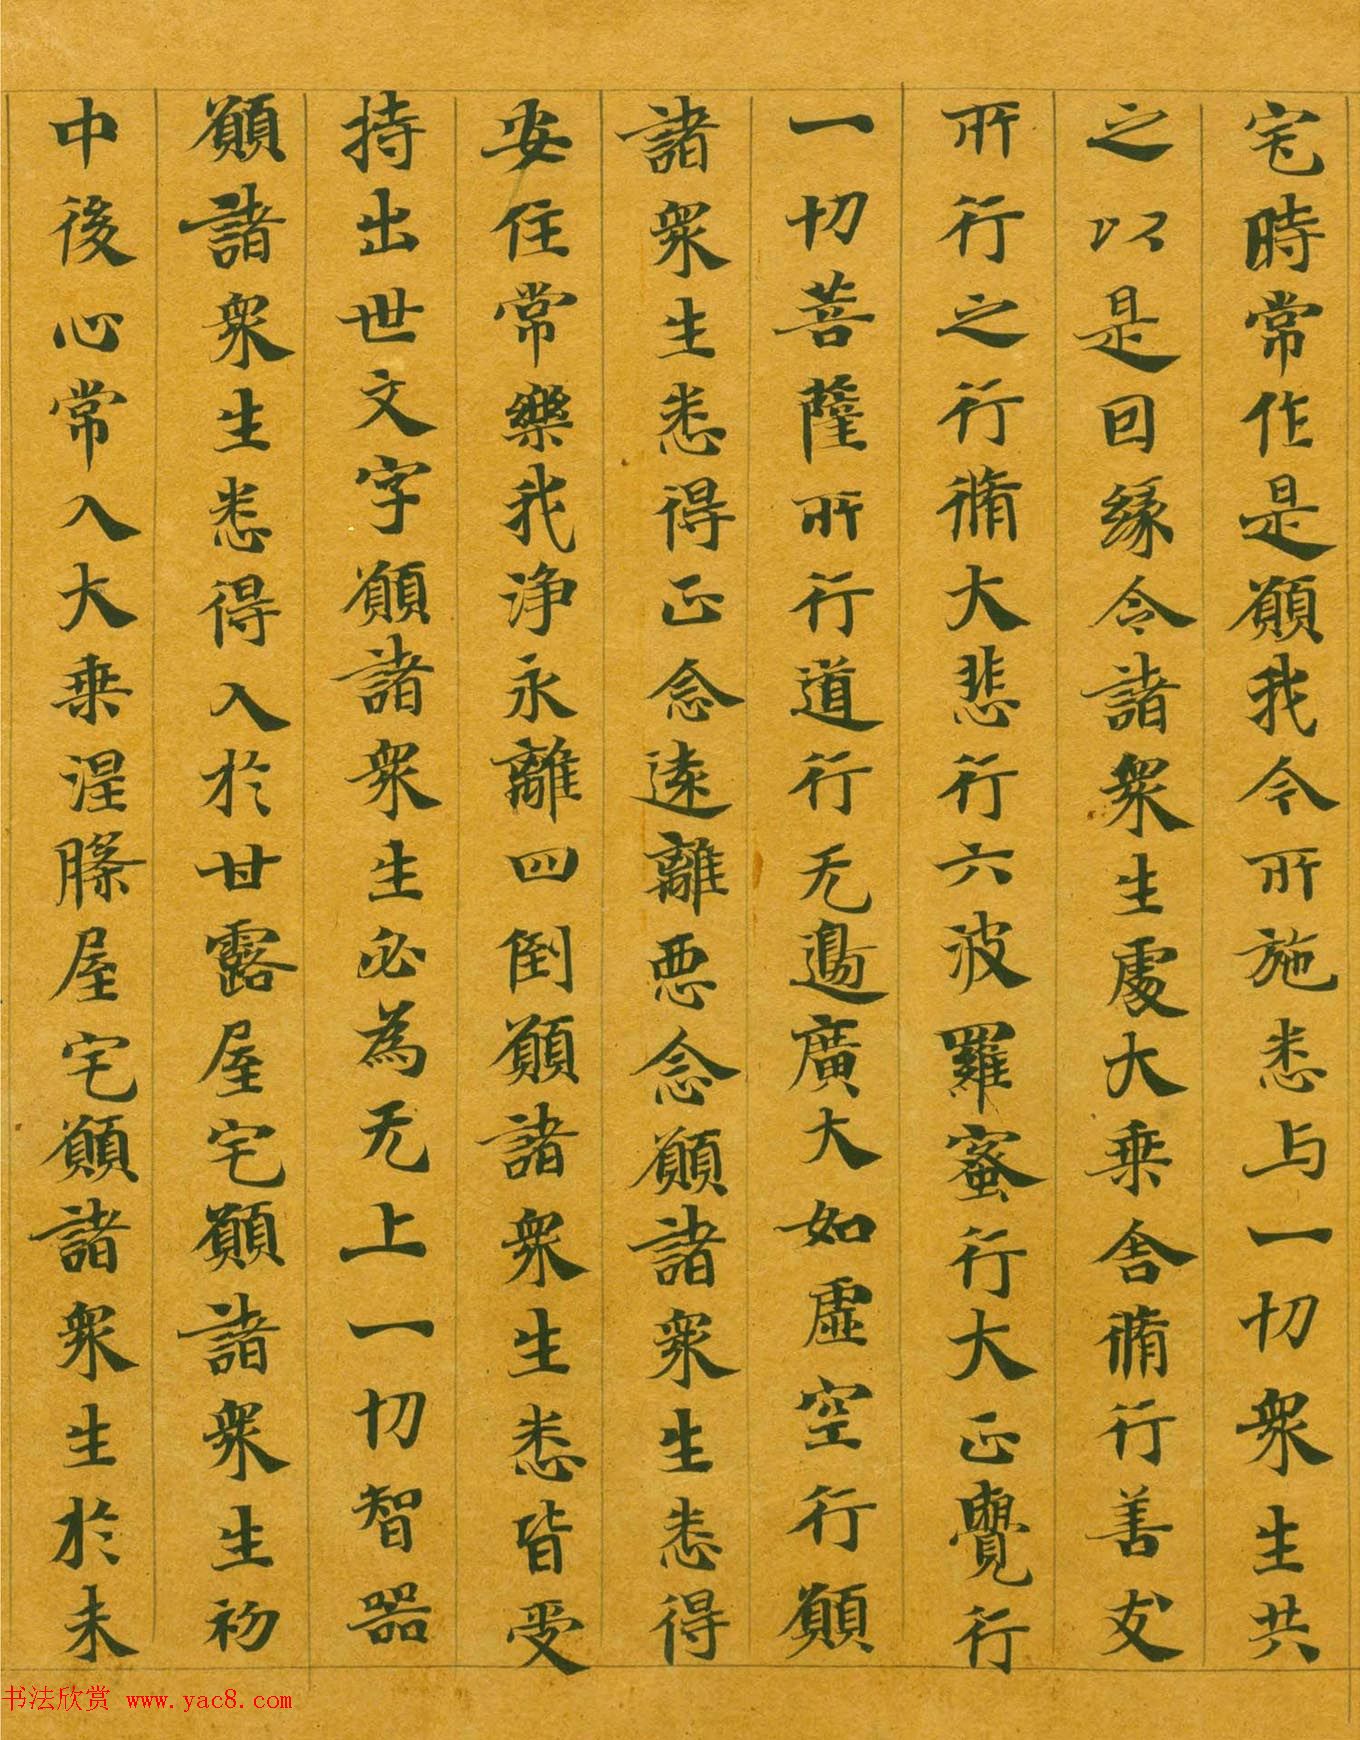 宅時常作是願我今所施悉与一切衆生共
之以是回緣令諸衆生處大乗舍脩行善友
所行之行脩大悲行六波羅蜜行大正覺行
一切菩薩所行道行无邊廣大如虛空行願
諸衆生悉得正念遠離惡念願諸衆生悉得
安住常樂我淨永離四倒願諸衆生悉皆受
持出世文字願諸衆生必為无上一切智器
願諸衆生悉得入於甘露屋宅願諸衆生初
中後心常入大乗涅槃屋宅願諸衆生於未
书法欣赏 www.yac8.com